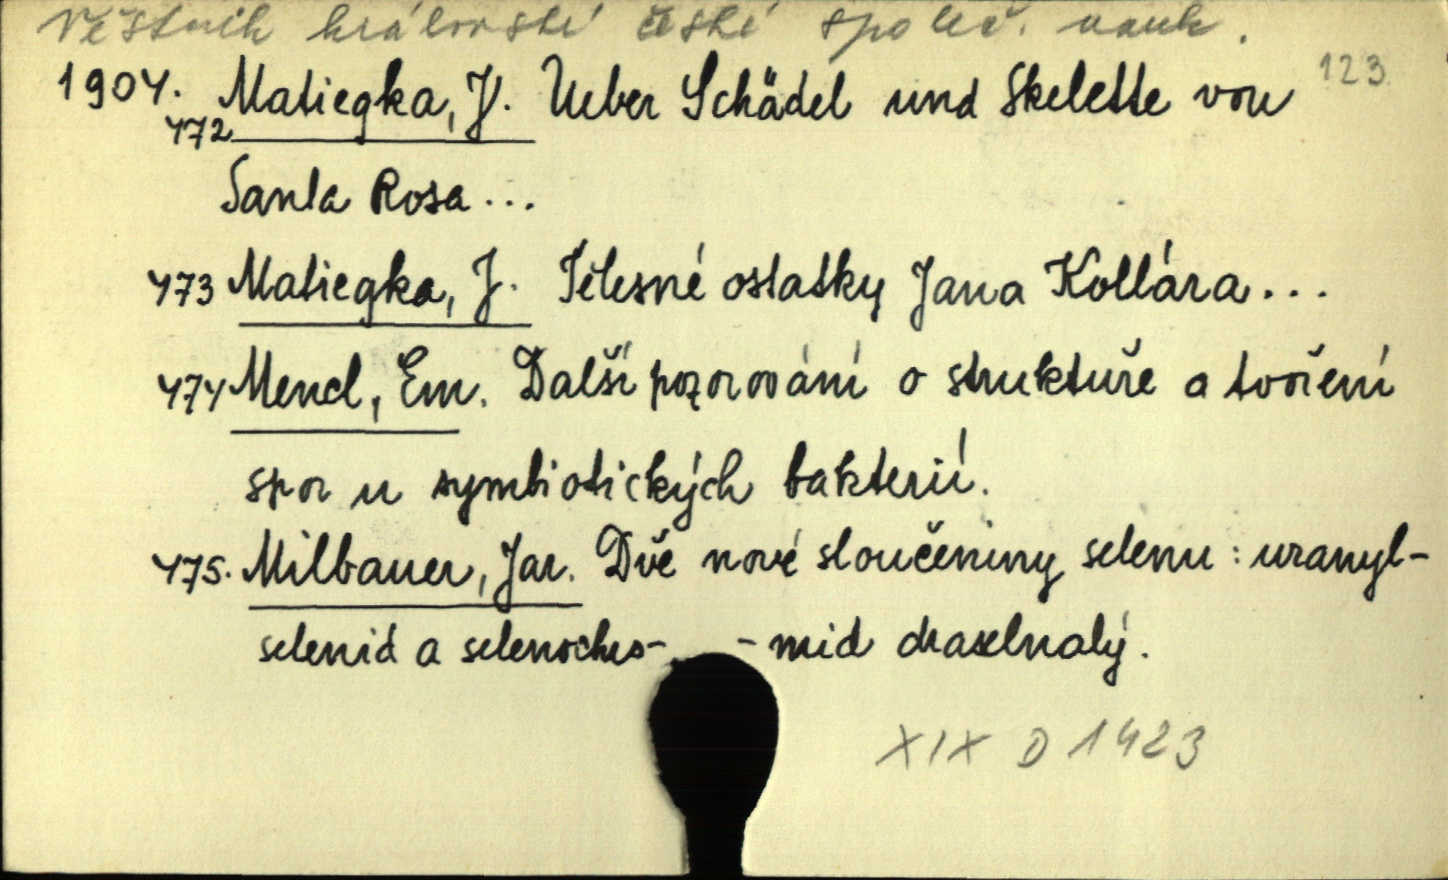 Věstník královské české společ. nauk.
123
1904. Matiegka, J. Ueber Schädel und Skelette von
472
Santa Rosa ...
473 Matiegka, J. Tělesné ostatky Jana Kollára ...
474 Mencl, Em. Další pozorování o struktuře a tvoření
spor u symbiotických bakterií.
475. Milbauer, Jar. Dvě nové sloučeniny selenu: uranyl-
selenid a selenochro- -mid draselnatý.
XIX D 1423